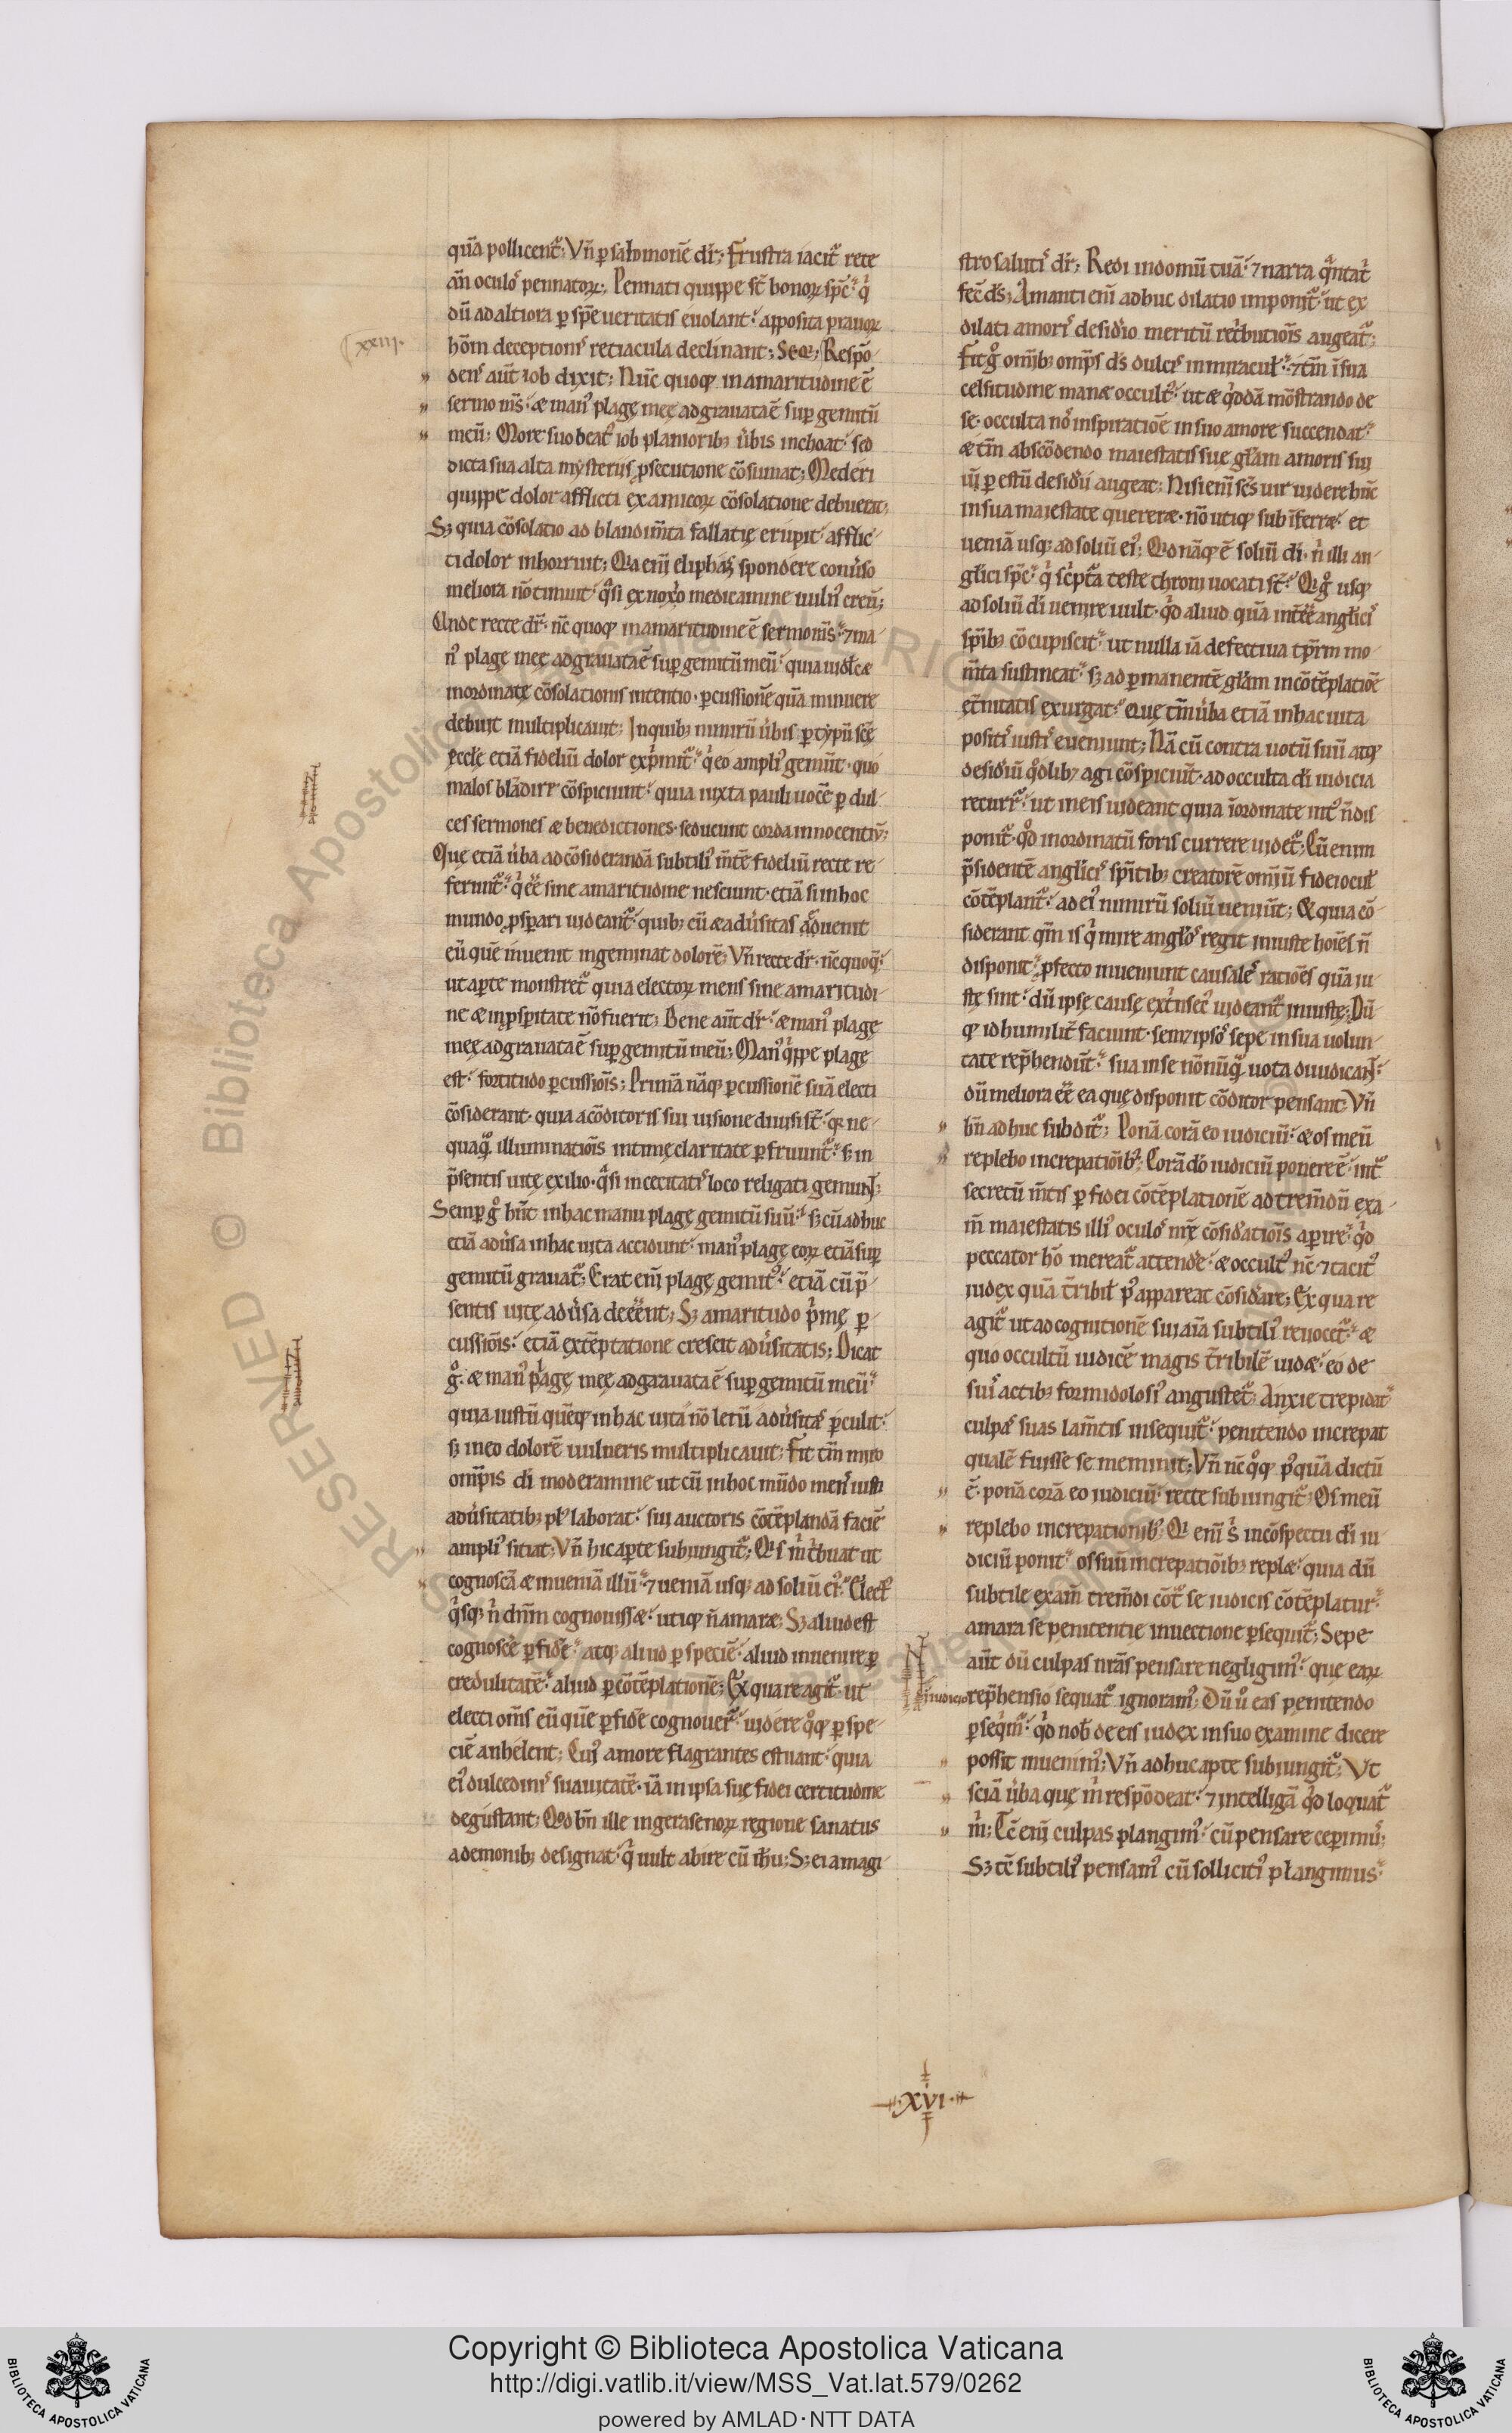 quā pollicent᷑; Vn̄ p̱ salomonē dr̄; Frustra iacit᷑ rete
an̄ oculos pennatoꝝ; Pennati quippe st̄ bonoꝝ sp̄c᷑ q̇
dū ad altiora p̱ sp̄e ueritatis euolant᷑ apposita prauoꝝ
hōm deceptionis retiacula declinant; Seq̄; Respō-
xxiii.
dens aūt iob dixit; Nūc quoq; in amaritudine ē
sermo ms̄ æ man᷒ plagę meę adgrauata ē sup̱ gemitū
meū; More suo beat᷒ iob planiorib; ūbis inchoat᷑ sed
dicta sua alta mysteriis p̱secutione cōsumat; Mederi
quippe dolor afflicti ex amicoꝝ cōsolatione debuerat;
Sꝫ quia cōsolatio ad blandim̄ta fallatię erupit᷑ afflic-
ti dolor inhorruit; Qa enī eliphaz spondere conūso
meliora nō timuit᷑ q̄si ex noxo medicamine uuln᷒ creū;
Unde recte dr̄ nc̄ quoq; in amaritudine ē sermo ms̄ ⁊ ma-
n᷒ plagę meę adgrauata ē sup̱ gemitū meū᷑ quia uidelicæ
inordinatę cōsolationis intentio p̱cussionē quā minuere
debuit multiplicauit; In quib; nimirū ūbis p̱ typū scę̄
eccłę etiā fideliū dolor exp̄mit᷑ q̇ eo ampli᷒ gemūt quo
malos blādiri cōspiciunt᷑ quia iuxta pauli uocē p̱ dul-
ces sermones æ benedictiones seducunt corda innocentiū;
Que etiā ūba ad cōsiderandā subtili᷒ m̄tē fideliū recte re-
ferunt᷑ q̇ ee᷑ sine amaritudine nesciunt etiā si in hoc
mundo p̱sp̱ari uideant᷑ quib; cū æ adūsitas aduenit
eū quē inuenit ingeminat dolorē; Vn̄ recte dr̄ nc̄ quoq;
ut ap̱te monstret᷑ quia electoꝝ mens sine amaritudi-
ne æ in p̱sp̱itate nō fuerit; Bene aūt dr̄ æ man᷒ plagę
meę adgrauata ē sup̱ gemitū meū; Man᷒ q̇ppe plagę
est᷑ fortitudo p̱cussiois̄; Primā nāq; p̱cussionē suā electi
cōsiderant quia a cōditoris sui uisione diuisi st̄ qꝛ ne-
quaq̄ illuminatiois̄ intimę claritate p̱fruunt᷑ s; in
p̄sentis uitę exilio q̄si in cecitatis loco religati gemunt;
Semp̱ g̊ hn̄t in hac manu plagę gemitū suū᷑ sꝫ cū adhuc
etiā adūsa in hac uita accidunt᷑ man᷒ plagę eoꝝ etiā sup̱
gemitū grauat᷑; Erat enī plagę gemit᷒ etiā cū p̄-
sentis uitę adūsa deeēnt; Sꝫ amaritudo p̄mę p̱-
cussiois̄ etiā ex tēptatione crescit adūsitatis; Dicat
g̊ æ man᷒ plagę meę adgrauata ē sup̱ gemitū meū᷑
quia iustū quēq; in hac uita nō letū adūsitas p̱culit᷑
sꝫ in eo dolorē uulneris multiplicauit; Fit tm̄ miro
omp̄is dī moderamine ut cū in hoc mūdo mens iusti
adūsitatib; pl᷒ laborat᷑ sui auctoris cōtēplandā faciē
ampli᷒ sitiat; Vn̄ hic ap̱te subiungit᷑; Qis m̄ t̄buat ut
cognoscā æ inueniā illū᷑ ⁊ ueniā usq; ad soliū ei᷒; Elect᷒
q̇sq; n̄ dnm̄ cognouissæ᷑ utiq; n̄ amaræ; Sꝫ aliud est
cognoscē p̱ fidē᷑ atq; aliud p̱ speciē᷑ aliud inuenire p̱
credulitatē᷑ aliud p̱ cōtēplationē; Ex qua re agit᷑ ut
electi oms̄ eū quē p̱ fidē cognouer̄᷑ uidere q̊q; p̱ spe-
ciē anhelent; Cui᷒ amore flagrantes estuant᷑ quia
ei᷒ dulcedinis suauitatē iā in ipsa suę fidei certitudine
degustant; Qod bn̄ ille in gerasenoꝝ regione sanatus
a demonib; designat᷑ q̇ uult abire cū ihu̅; Sꝫ ei a magi-
stro salutis dr̄; Redi in domū tuā᷑ ⁊ narra q̄nta t̄
fec̄ ds̄; Amanti enī adhuc dilatio imponit᷑ ut ex
dilati amoris desid'io meritū ret̄butiois̄ augeat᷑;
Fit g̊ omīb; omp̄s ds̄ dulcis in miraculis ⁊ tm̄ ī sua
celsitudine manæ occult᷒ ut æ q̇ddā mōstrando de
se occulta nos inspiratiōe in suo amore succendat᷑
æ tm̄ abscōdendo maiestatis sue gl̄am amoris sui
uī p̱ estū desid'ii augeat; Nisi enī scs̄ uir uidere hūc
in sua maiestate quereræ nō utiq; subīferræ᷑ et
ueniā usq; ad soliū ei᷒; Qd nāq; ē soliū dī n̄ illi an-
glīci sp̄c᷑ q̇ sc̄pt̄a teste throni uocati st̄; Q̇ g̊ usq;
ad soliū dī uenire uult q̇d aliud quā int̄ee᷑ anglīcis
sp̄ib; cōcupiscit᷑ ut nulla iā defectiua tp̄rm mo-
m̄ta sustineat᷑ sꝫ ad p̱manentē gl̄am in cōtēplatiōe
et̄nitatis exurgat᷑ Quę tm̄ ūba etiā in hac uita
positis iustis eueniunt; Nā cū contra uotū suū atq;
desid'iū q̊dlib; agi cōspiciūt ad occulta dī iudicia
recurr᷑ ut in eis uideant quia īordinate int᷒ n̄ dis-
ponit᷑ q̊d inordinatū foris currere uidet᷑; Cū enim
p̄sidentē anglīcis sp̄itib; creatorē omīū fidei oculis
cōtēplant᷑ ad ei᷒ nimirū soliū ueniūt; Et quia cō-
siderant qm̄ is q̇ mire anglos regit iniuste hoīes n̄
disponit᷑ p̱fecto inueniunt causales ratiōes quā iu-
stę sint᷑ dū ipsę causę ext̄nsec᷒ uideant᷑ iniustę; Dū-
q; id humilit̄ faciunt semꝫ ipsos sepe in sua uolun-
tate rep̄hendūt᷑ sua in se nōnūq̄ uota diiudicant᷑
dū meliora ee᷑ ea quę disponit cōditor pensant; Vn̄
bn̄ adhuc subdit᷑; Ponā corā eo iudiciū᷑ æ os meū
replebo increpatiōib;; Corā dō iudiciū ponere ē᷑ int᷑
secretū m̄tis p̱ fidei cōtēplationē ad trem̄dū exa-
m̄ maiestatis illi᷒ oculos nr̄ę cōsid'atiois̄ ap̱ire᷑ q̇d
peccator hō mereat᷑ attend'e᷑ æ occult᷒ nc̄ ⁊ tacit᷒
iudex quā t̄ribił p᷒ appareat cōsid'are; Ex qua re
agit᷑ ut ad cognitionē sui aīā subtili᷒ reuocet᷑ æ
quo occultū iudicē magis t̄ribilē uidæ᷑ eo de
suis actib; formidolosi᷒ angustet᷑; Anxie trepidat᷑
culpas suas lam̄tis insequit᷑ penitendo increpat
qualē fuisse se meminit; Vn̄ nc̄ q̊q; p᷒quā dictū
ē ponā corā eo iudiciū᷑ recte subiungit᷑; Os meū
replebo increpationib;; Qi enī s᷑ in cōspectu dī iu-
diciū ponit᷑ os suū increpatiōib; replæ᷑ quia dū
subtile exam̄ trem̄di cōt᷑ se iudicis cōtēplatur᷑
amara se penitentie inuectione p̱sequit᷑; Sepe
aūt dū culpas nr̄as pensare negligim᷒ que eaꝝ
in iudicio
rep̄hensio sequat᷑ ignoram᷒; Dū ů eas penitendo
p̱seqim᷒᷑ q̇d nob̄ de eis iudex in suo examine dicere
possit inuenim᷒; Vn̄ adhuc apte subiungit᷑; Vt
sciā ūba quę m̄ respōdeat᷑ ⁊ intelligā q̇d loquat᷑
m̄; Tc̄ enī culpas plangim᷒ cū pensare cep̱imus;
Sꝫ tc̄ subtili᷒ pensam᷒ cū solliciti᷒ plangimus᷑
xvi
Copyright © Biblioteca Apostolica Vaticana
http://digi.vatlib.it/view/MSS_Vat.lat.579/0262
powered by AMLAD·NTT DATA